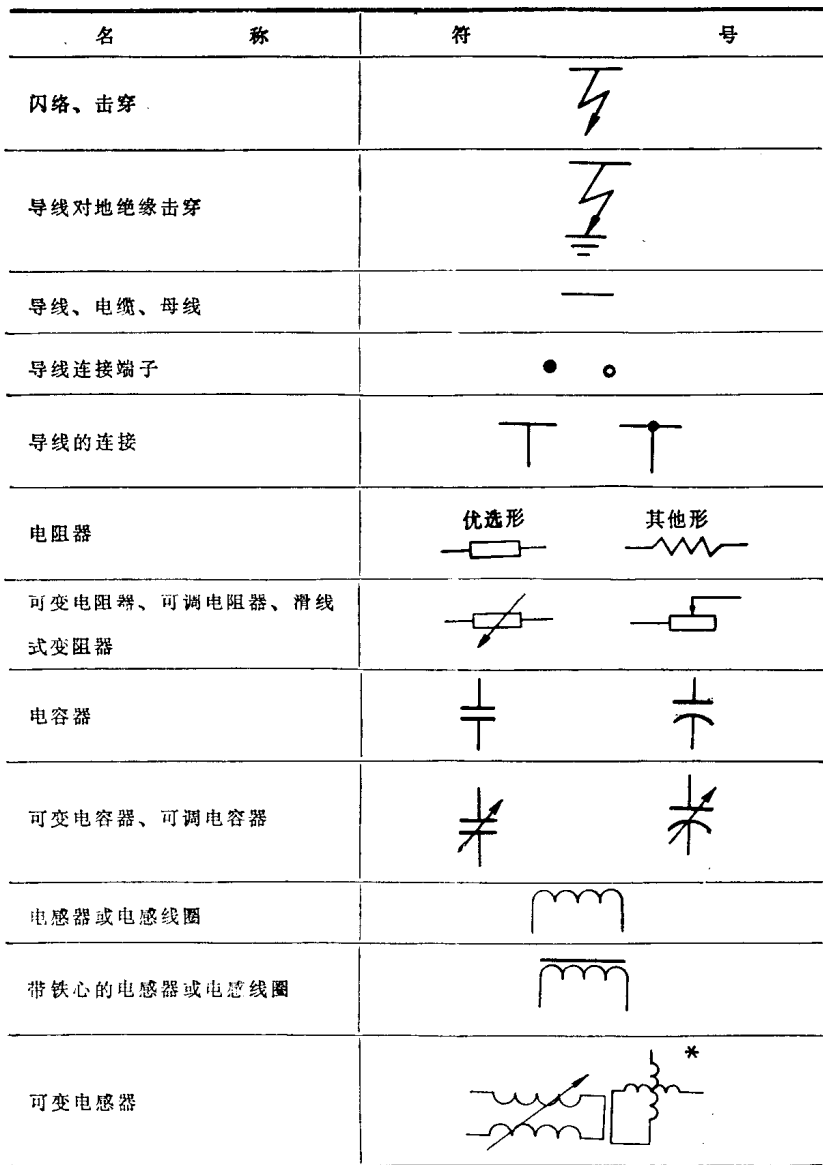 名 称 符 号
闪络、击穿
导线对地绝缘击穿
导线、电缆、母线
导线连接端子
导线的连接
优选形 其他形
电阻器
可变电阻器、可调电阻器、滑线
式变阻器
电容器
可变电容器、可调电容器
电感器或电感线圈
带铁心的电感器或电感线圈
*
可变电感器